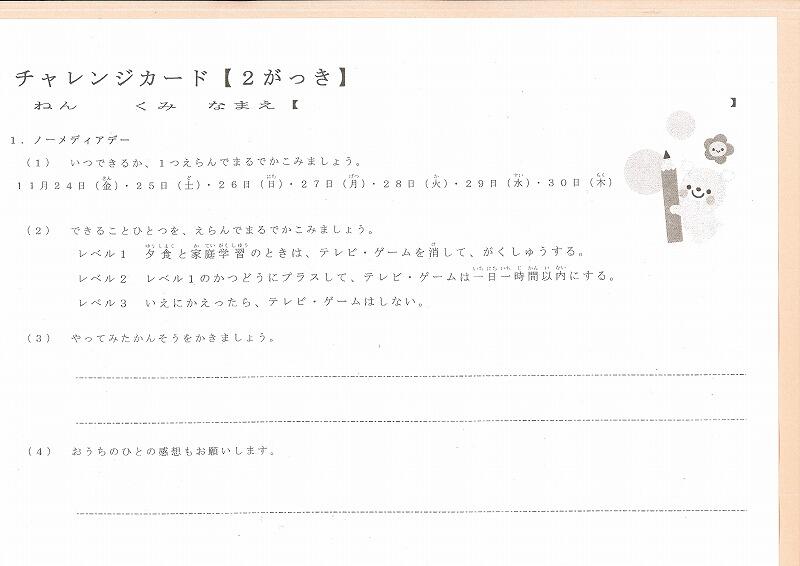 チャレンジカード【２がっき】
ねん　くみ　なまえ【　】
１．ノーメディアデー
（１）　いつできるか、１つえらんでまるでかこみましょう。
１１月２４日（金）・２５日（土）・２６日（日）・２７日（月）・２８日（火）・２９日（水）・３０日（木）
（２）　できることひとつを、えらんでまるでかこみましょう。
レベル１　夕食と家庭学習のときは、テレビ・ゲームを消して、がくしゅうする。
レベル２　レベル１のかつどうにプラスして、テレビ・ゲームは一日一時間以内にする。
レベル３　いえにかえったら、テレビ・ゲームはしない。
（３）　やってみたかんそうをかきましょう。
（４）　おうちのひとの感想もお願いします。